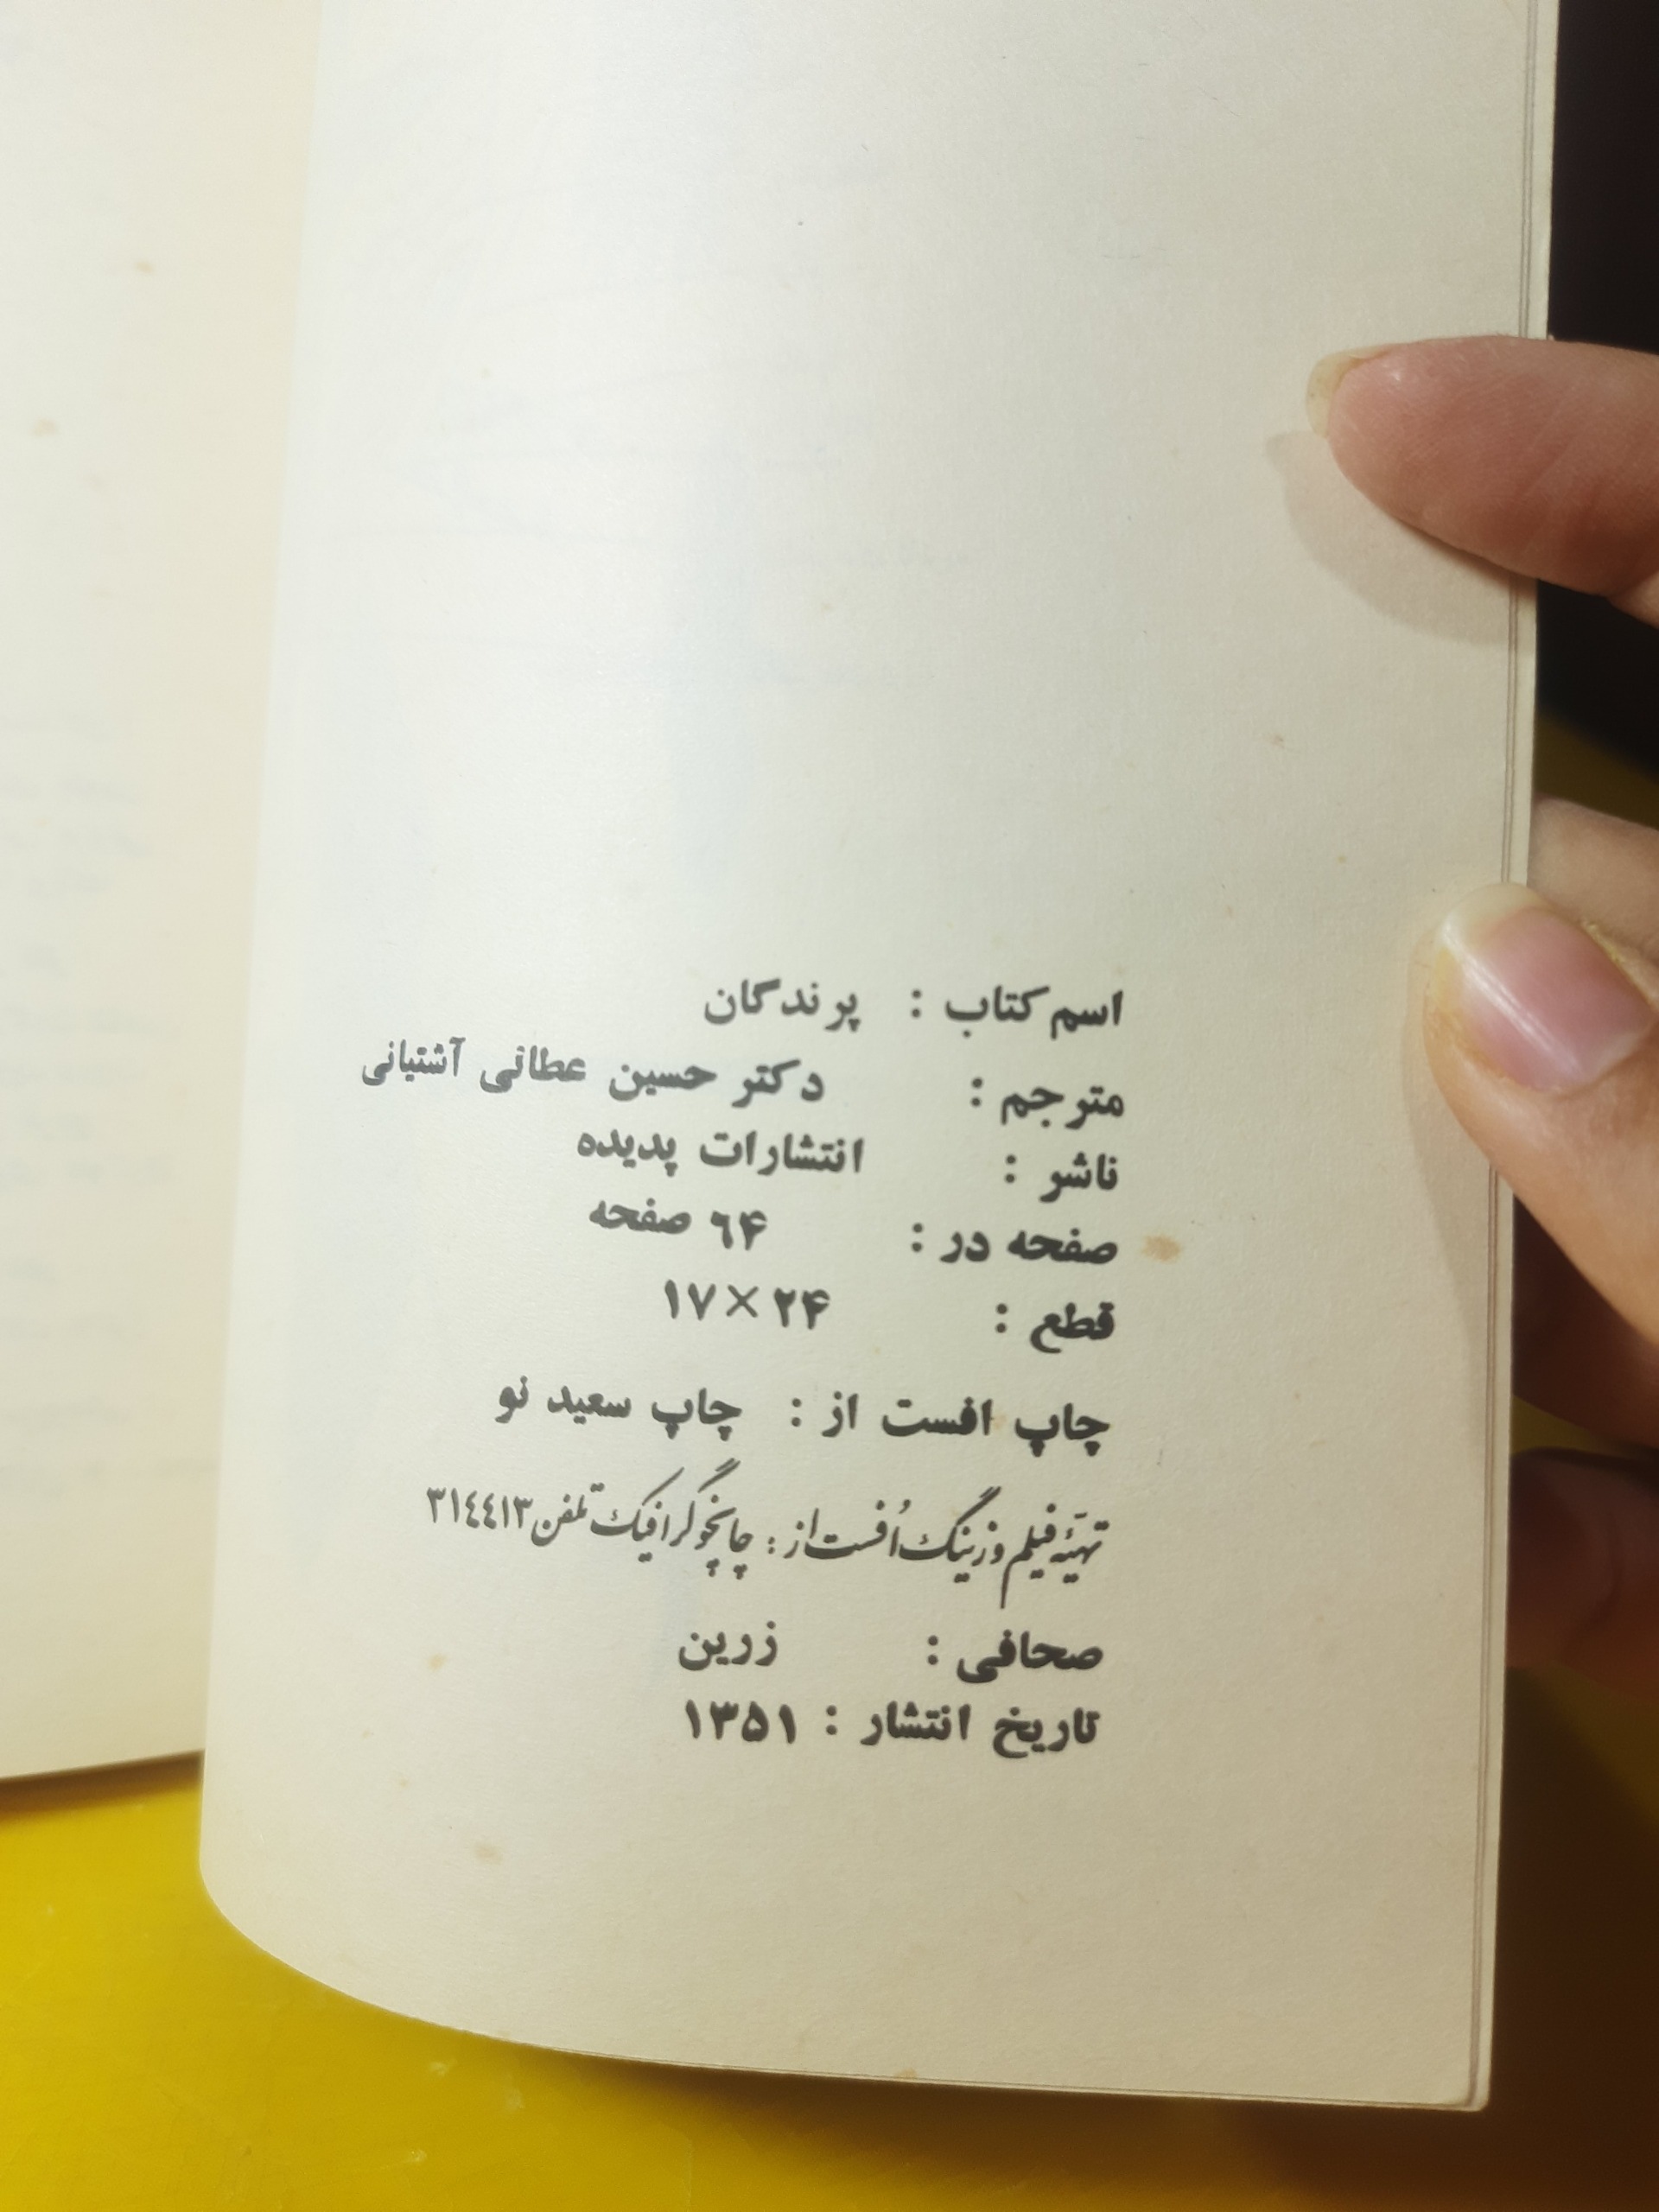 اسم کتاب : پرندگان
مترجم : دکتر حسین عطائی آشتیانی
ناشر : انتشارات پدیده
صفحه در : ۶۴ صفحه
قطع : ۱۷×۲۴
چاپ افست از : چاپ سعید نو
تهیهٔ فیلم و زینگ اُفست از : چاپخو گرافیک تلفن ۳۱٤٤۱۳
صحافی : زرین
تاریخ انتشار : ۱۳۵۱